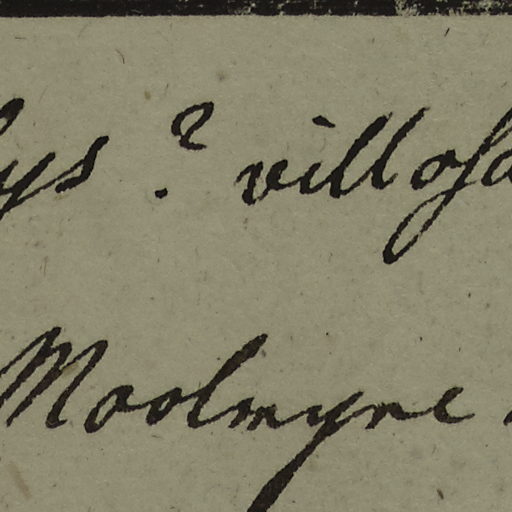 ys ? villosa
Moolmyne